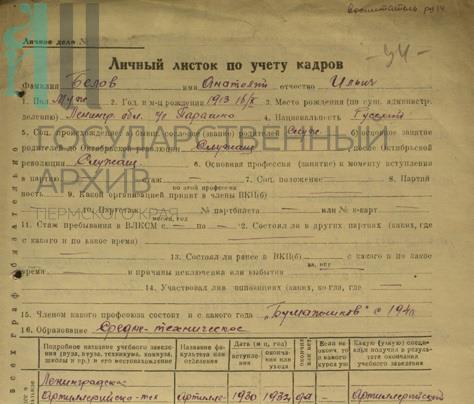 воспитатель РУ 14
Личное дело №
-34-
Личный листок по учету кадров
Фамилия Белов имя Анатолий отчество Ильич
1. Пол Муж 2. Год и м-ц рождения 1913 16/X 3. Место рождения (по сущ. администр.
делению) Ленингр. обл. 4. Национальность Русский
5. Соц. происхождение: а) бывш. сословие (звание) родителей Служ. б) основное занятие
родителей до Октябрьской революции Служащ после Октябрьской
революции Служащ. 6. Основная профессия (занятие) к моменту вступления
в партию 7. Соц. положение 8. Партий-
ность 9. Какой организацией принят в члены ВКП(б)
10. Партстаж № партбилета или № к-карт
месяц, год
11. Стаж пребывания в ВЛКСМ с по 12. Состоял ли в других партиях (каких, где
с какого и по какое время)
13. Состоял ли ранее в ВКП(б) с какого и по какое
да, нет
время и причины исключения или выбытия
14. Участвовал ли в оппозициях (каких, когда, где
15. Членом какого профсоюза состоит и с какого года "Бумажников" с
16. Образование Средне-техническое
Подробное название учебного заведе-
ния (вуза, втуза, техникума, комвуза,
школы и пр.) и его местонахождение
Название фа-
культета или
отделения
Дата (м-ц, год)
вступле-
ния
оконча-
ния или
ухода
Если не
окончил, то
с какого
курса ушел
Какую (узкую) специ-
альность получил в резуль-
тате окончания
учебного заведения
Ленинградское
Артиллерийско-тех 1930 1932 да - Артиллерийский
ГОСУДАРСТВЕННЫЙ
АРХИВ
ПЕРМСКОГО КРАЯ